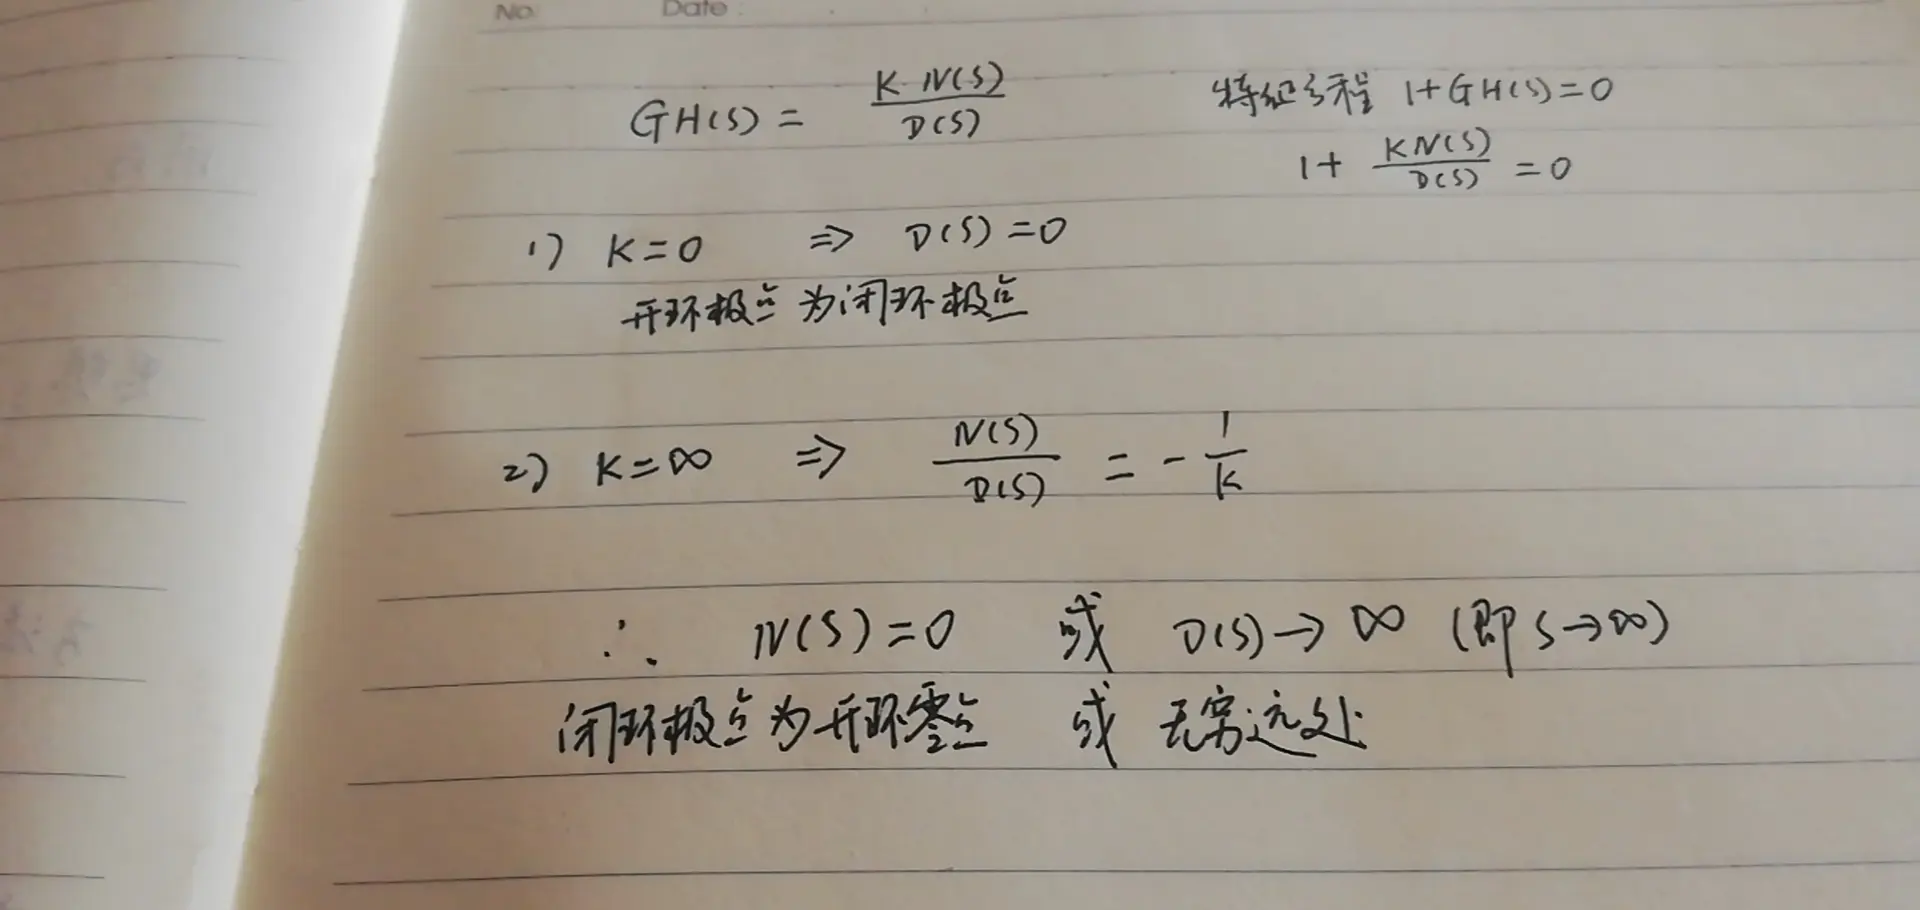 No. Date :
GH(S) = K·N(S) / D(S) 特征方程 1+GH(S)=0
1+ KN(S) / D(S) = 0
1) K=0 => D(S)=0
开环极点为闭环极点
2) K=∞ => N(S) / D(S) = - 1 / K
∴ N(S)=0 或 D(S)→∞ (即S→∞)
闭环极点为开环零点 或 无穷远处